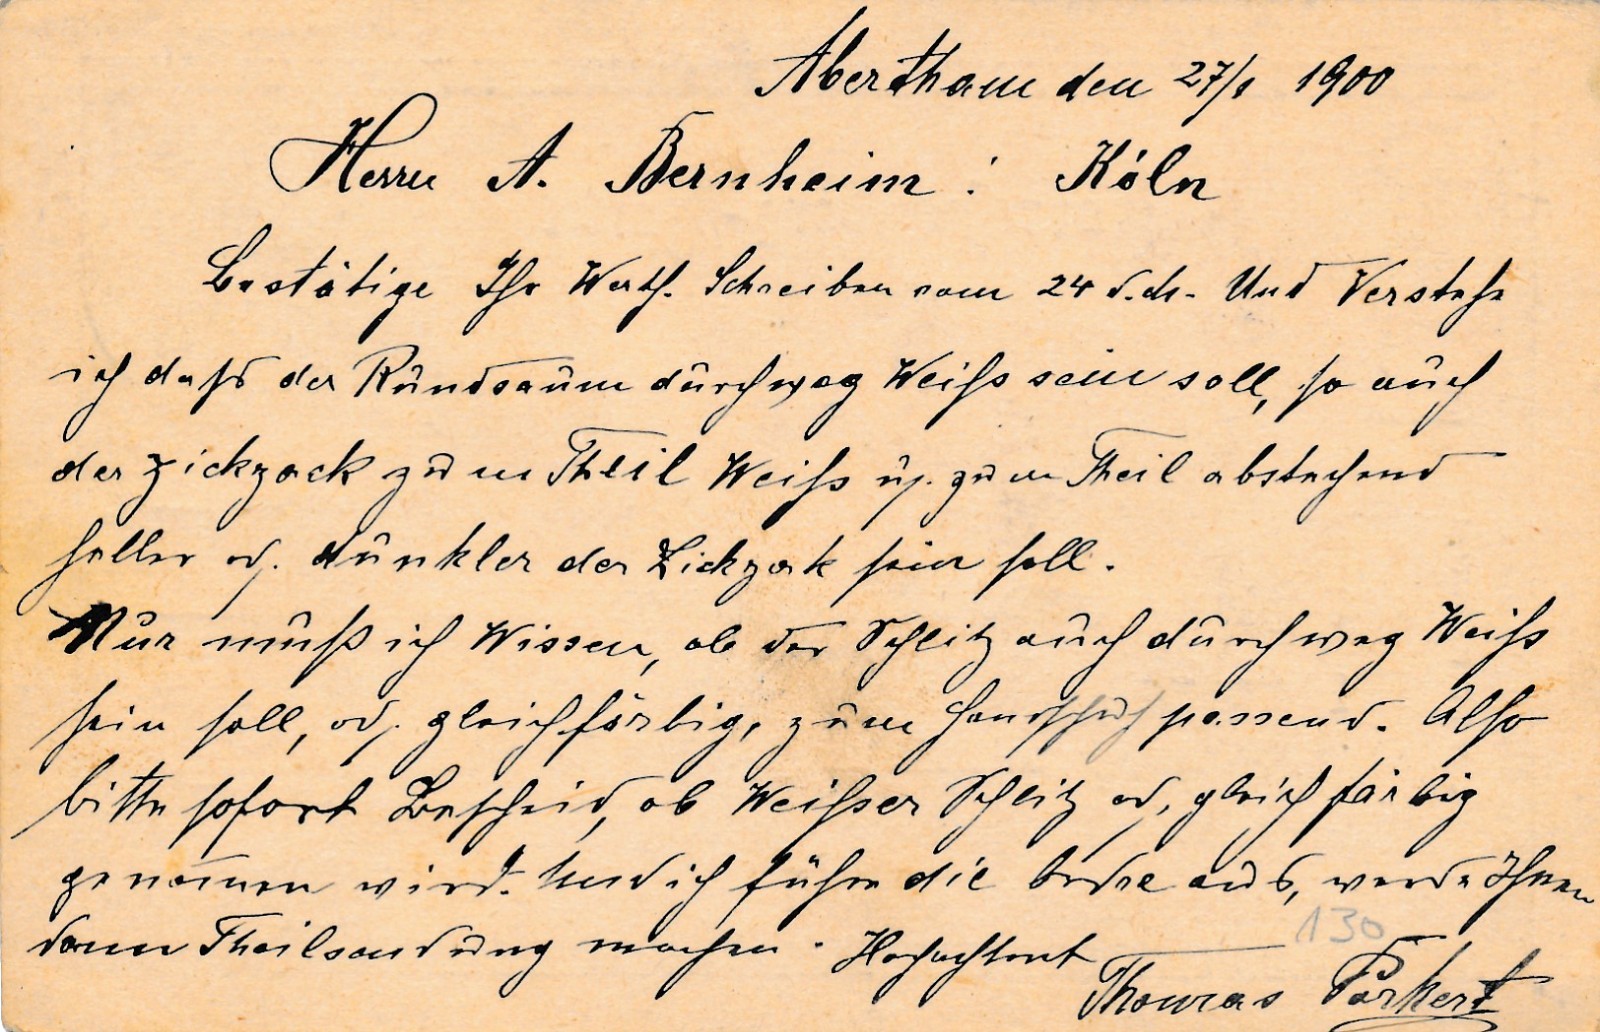 Abertham den 27/1 1900
Herrn A. Bernheim! Köln
Bestätige Ihr Werth. Schreiben vom 24 d.M. Und Verstehe
ich daß der Rundsaum durchweg Weiss sein soll, so auch
der zickzack zum Theil Weiss u. zum Theil abstechend
heller od. dunkler der Zickzak sein soll.
Nur muß ich Wissen, ob der Schlitz auch durchweg Weiss
sein soll, od. gleichfärbig, zum Handschuh passend. Also
bitte sofort Bescheid, ob Weisser Schlitz od. gleichfärbig
genom̅en wird. Und ich führe die Ordre aus, werde Ihnen
dann Theilsendung machen. Hochachtent
130
Thomas Porkert